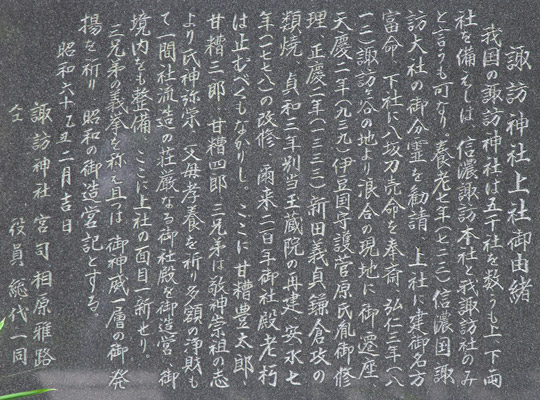 諏訪神社上社御由緒
我国の諏訪神社は五千社を数うも上、下両
社を備えしは、信濃諏訪本社と我諏訪社のみ
と言うも可なり。養老七年(七二三)信濃国諏
訪大社の御分霊を勧請、上社に建御名方
富命、下社に八坂刀売命を奉斎、弘仁三年(八
一二)諏訪ヶ谷の地より退合の現地に御遷座
天慶二年(九三九)伊豆国守護菅原氏胤御修
理、正慶二年(一三三三)新田義貞鎌倉攻の
類焼、貞和三年別当玉蔵院の再建、安永七
年(一七七八)の改修、爾来二百年御社殿老朽
は止むべくもなかりし。ここに甘糟豊太郎・
甘糟三郎、甘糟四郎、三兄弟は敬神宗祖の志
より氏神弥栄、父母孝養を祈り多額の浄財も
て一間社流造の荘厳なる御社殿を御造営、御
境内をも整備、ここに上社の面目一新せり。
三兄弟の義挙を称え且つは、御神威一層の御発
揚を祈り、昭和の御造営記とする。
昭和六十乙丑二月吉日
諏訪神社 宮司 相原雅路
仝 役員 総代一同